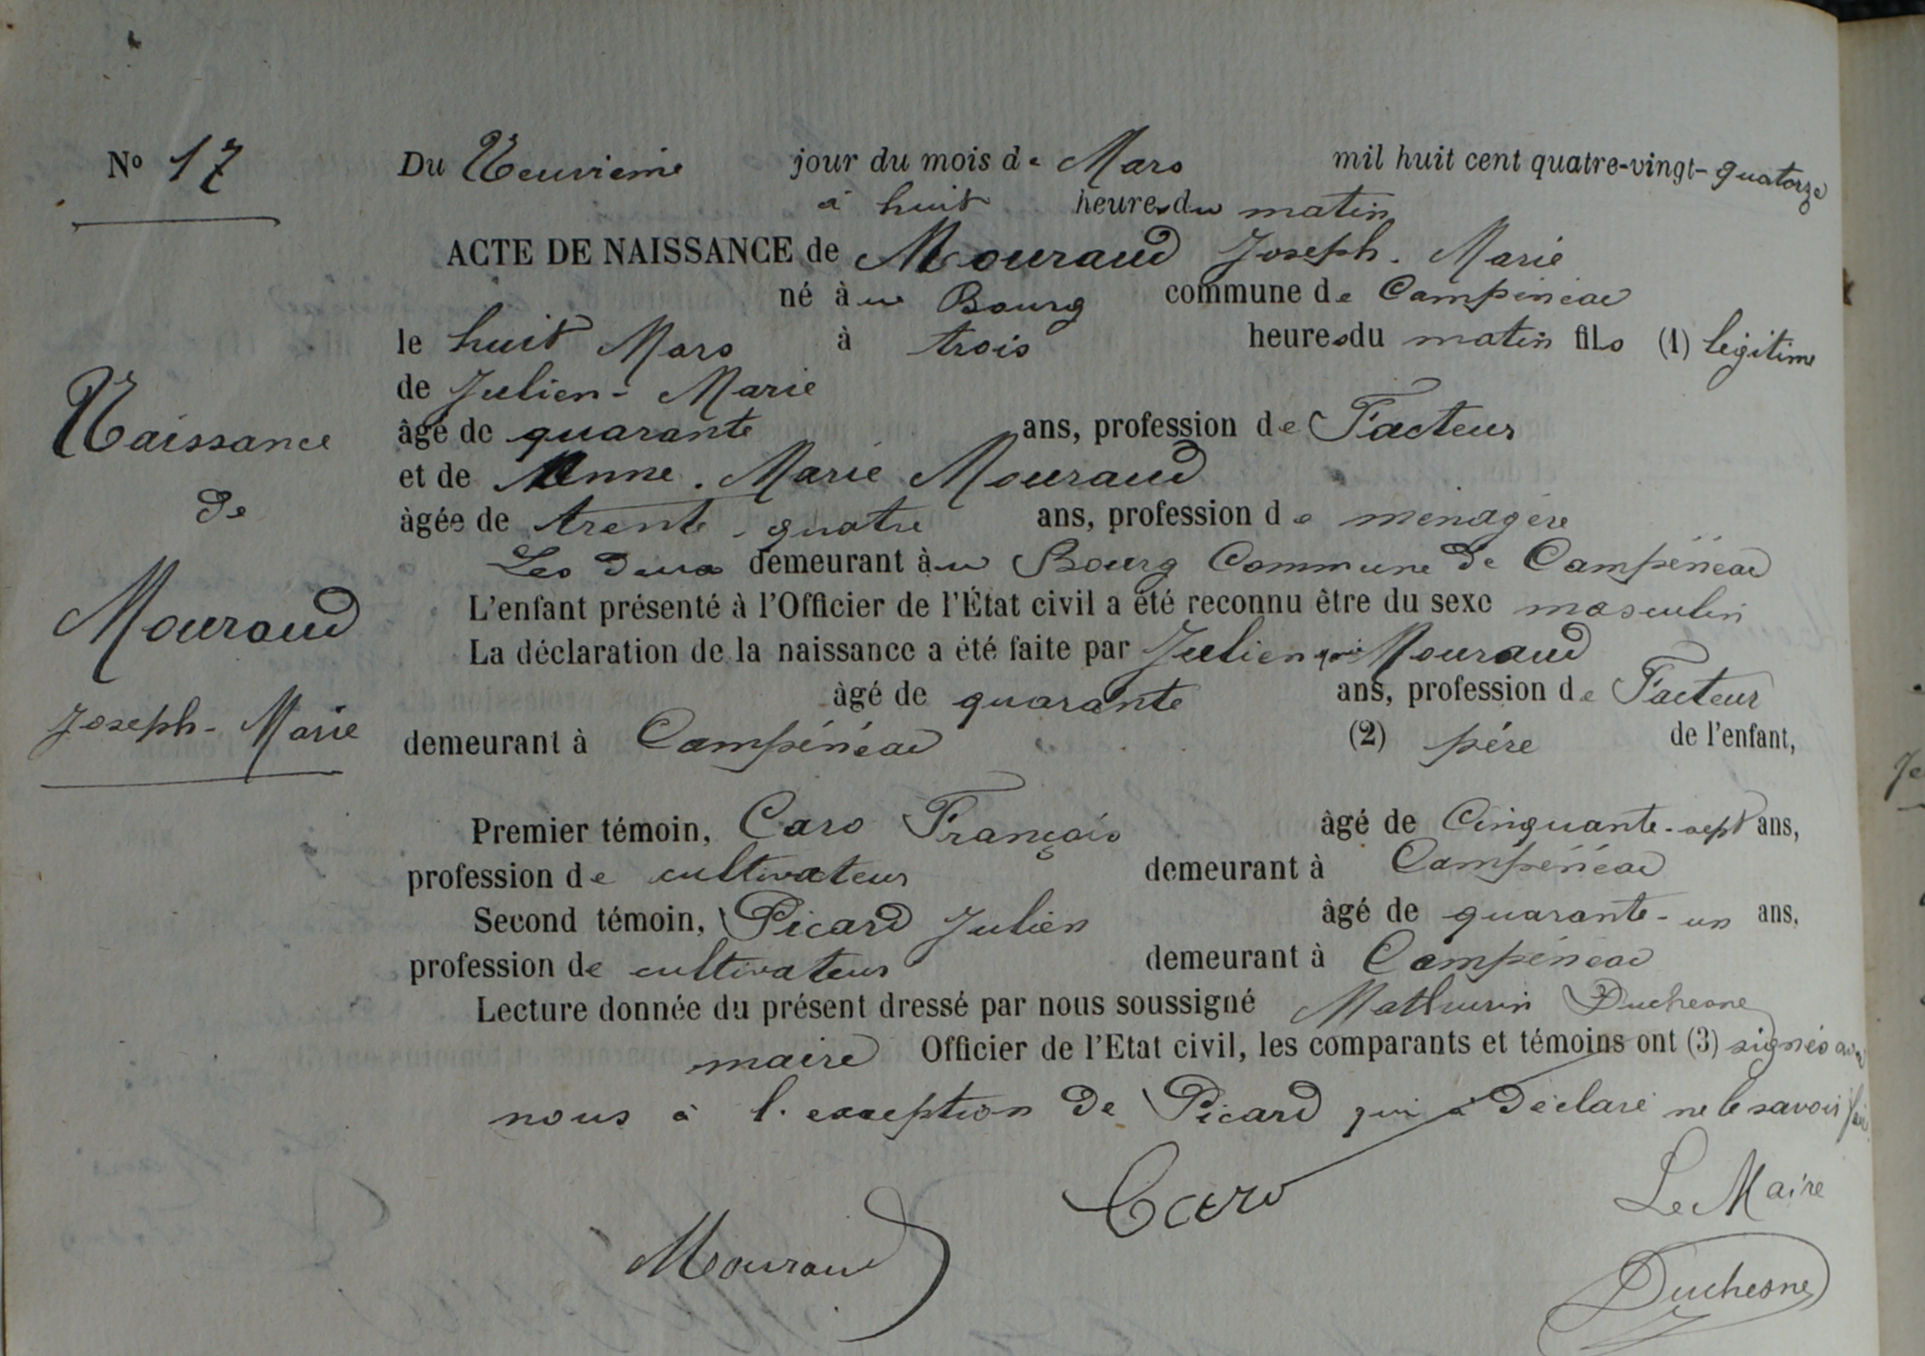 Nº 17
Du Neuvième jour du mois de Mars mil huit cent quatre-vingt-quatorze
à huit heures du matin
ACTE DE NAISSANCE de Mouraud Joseph-Marie
né àu Bourg commune de Campénéac
le huit Mars à trois heures du matin fils (1) légitime
de Julien-Marie
âgé de quarante ans, profession de Facteur
et de Anne-Marie Mouraud
âgée de trente-quatre ans, profession de ménagère
Les deux demeurant àu Bourg Commune de Campénéac
L'enfant présenté à l'Officier de l'État civil a été reconnu être du sexe masculin
La déclaration de la naissance a été faite par Julien Mouraud
âgé de quarante ans, profession de Facteur
demeurant à Campénéac (2) père de l'enfant,
Premier témoin, Caro François âgé de Cinquante-sept ans,
profession de cultivateur demeurant à Campénéac
Second témoin, Picard Julien âgé de quarante-un ans,
profession de cultivateur demeurant à Campénéac
Lecture donnée du présent dressé par nous soussigné Mathurin Duchesne
maire Officier de l'Etat civil, les comparants et témoins ont (3) signés avec
nous à l'exception de Picard qui a déclaré ne le savoir faire
Naissance
de
Mouraud
Joseph-Marie
Caro
Le Maire
Mouraud
Duchesne